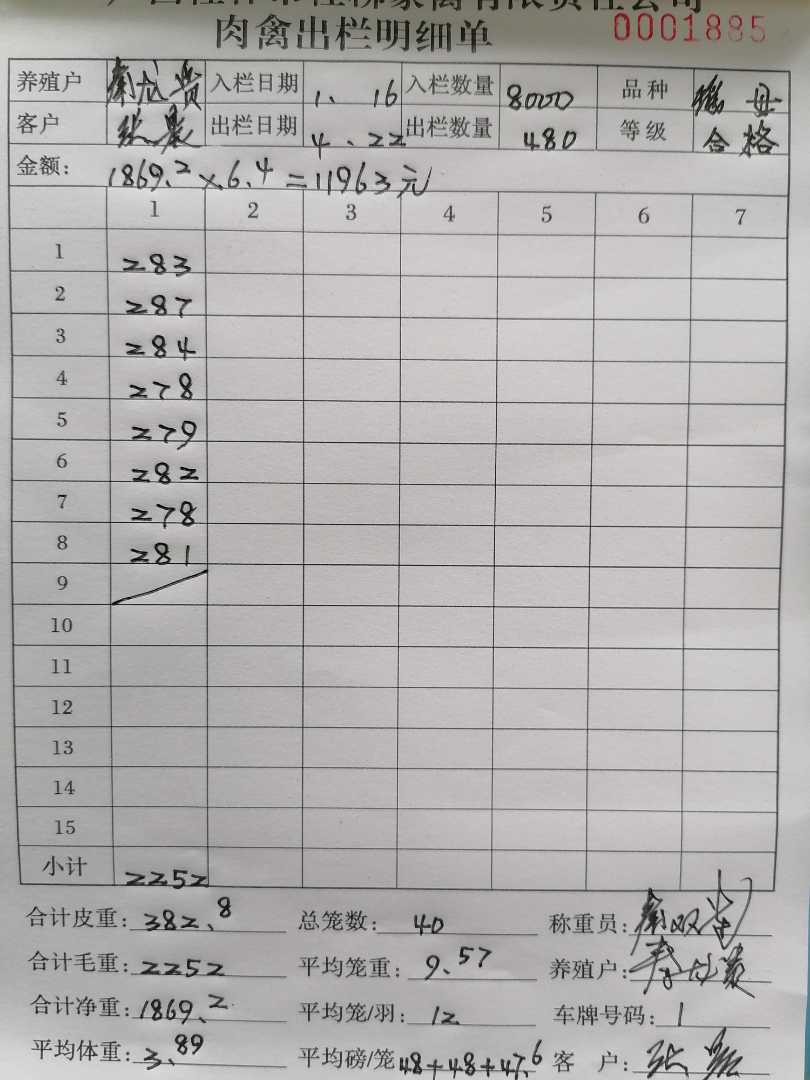 肉禽出栏明细单 0001885
养殖户 入栏日期 1、16 入栏数量 8000 品种
客户 出栏日期 4、22 出栏数量 480 等级 合格
金额: 1869.2×6.4=11963元
1 2 3 4 5 6 7
1 283
2 287
3 284
4 278
5 279
6 282
7 278
8 281
9
10
11
12
13
14
15
小计 2252
合计皮重: 382.8 总笼数: 40 称重员:
合计毛重: 2252 平均笼重: 9.57 养殖户:
合计净重: 1869.2 平均笼/羽: 12 车牌号码: 1
平均体重: 3.89 平均磅/笼 48+48+47.6 客 户: